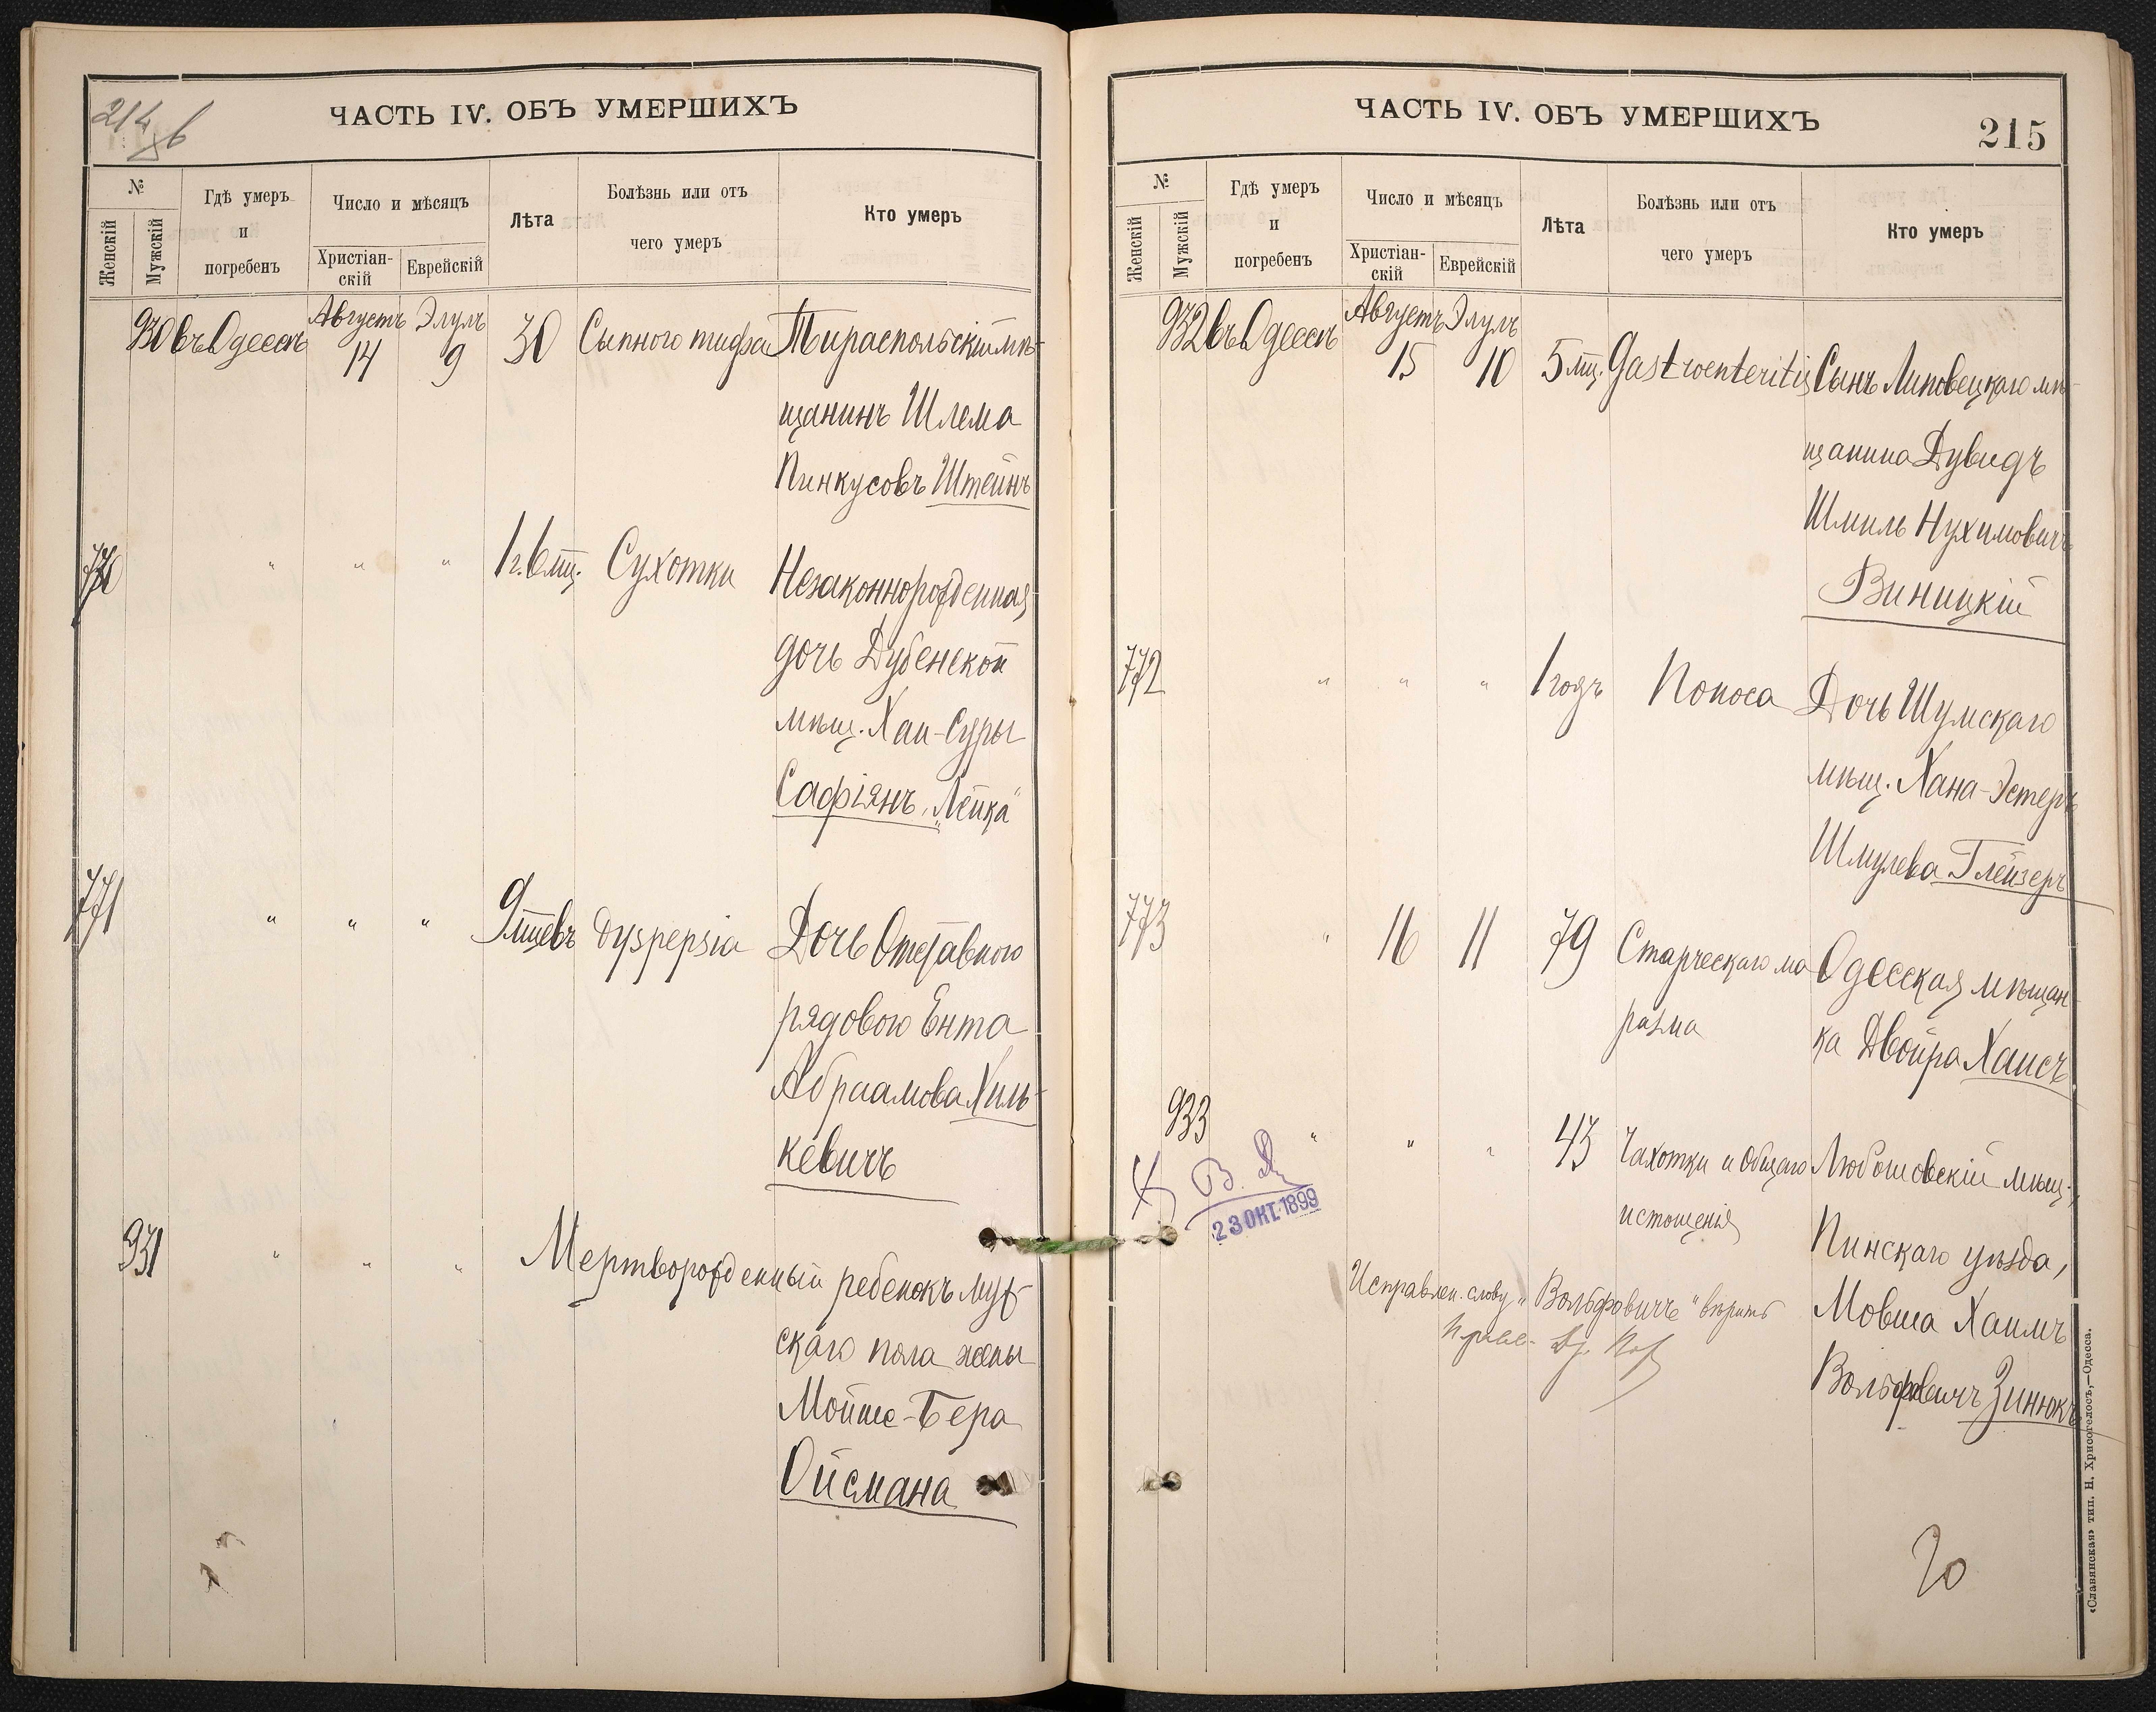 214 об
ЧАСТЬ IV. ОБЪ УМЕРШИХЪ
№
Женскій
Мужскій
Гдѣ умеръ
и
погребенъ
Число и мѣсяцъ
Христіан-
скій
Еврейскій
Лѣта
Болѣзнь или отъ
чего умеръ
Кто умеръ
930 въ Одессѣ Августъ 14 Элулъ 9 30 Сыпного тифа Тираспольскій мѣ-
щанинъ Шлема
Пинкусовъ Штейнъ
770 " " " 1 г. 6 мц. Сухотки Незаконнорожденная
дочь Дубенской
мѣщ. Хаи-Суры
Сафіянъ, „Лейка"
771 " " " 9 мцевъ Dyspepsia Дочь Отставного
рядового Ента
Абраамова Хиль-
кевичъ
931 " " " Мертворожденный ребенокъ муж-
скаго пола жены
Мойше-Бера
Ойсмана
ЧАСТЬ IV. ОБЪ УМЕРШИХЪ
215
№
Женскій
Мужскій
Гдѣ умеръ
и
погребенъ
Число и мѣсяцъ
Христіан-
скій
Еврейскій
Лѣта
Болѣзнь или отъ
чего умеръ
Кто умеръ
932 въ Одессѣ Августъ 15 Элулъ 10 5 мц. Gastroenteritis Сынъ Липовецкаго мѣ-
щанина Дувидъ
Шмиль Нухимовичъ
Виницкій
772 " " " 1 годъ Поноса Дочь Шумскаго
мѣщ. Хана-Эстеръ
Шмулева Глейзеръ
773 " 16 11 79 Старческаго ма Одесская мѣщан-
разма ка Двойра Хаисъ
933 " " " 43 Чахотки и Общаго Любошовскій мѣщ.,
истощенія Пинскаго уѣзда,
Мовша Хаимъ
Вольфовичъ Зинюкъ
В.
23 ОКТ. 1899
Исправлен. слову „Вольфовичъ" вѣрить
20
«Славянская» тип. Н. Хрисогелосъ,—Одесса.